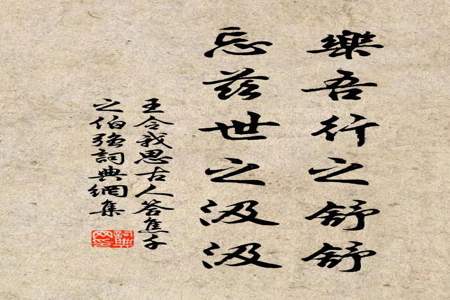 樂吾行之舒舒
忘茲世之汲汲
王令我思古人答焦千
之伯強詞典網集